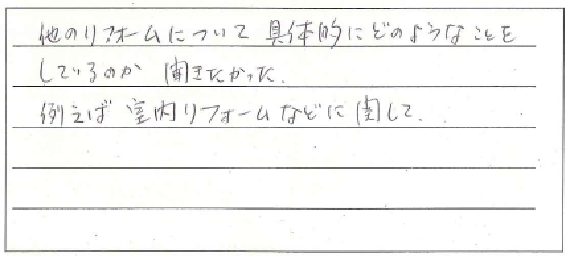 他のリフォームについて 具体的にどのようなことを
しているのか 聞きたかった.
例えば 室内リフォームなどに関して.